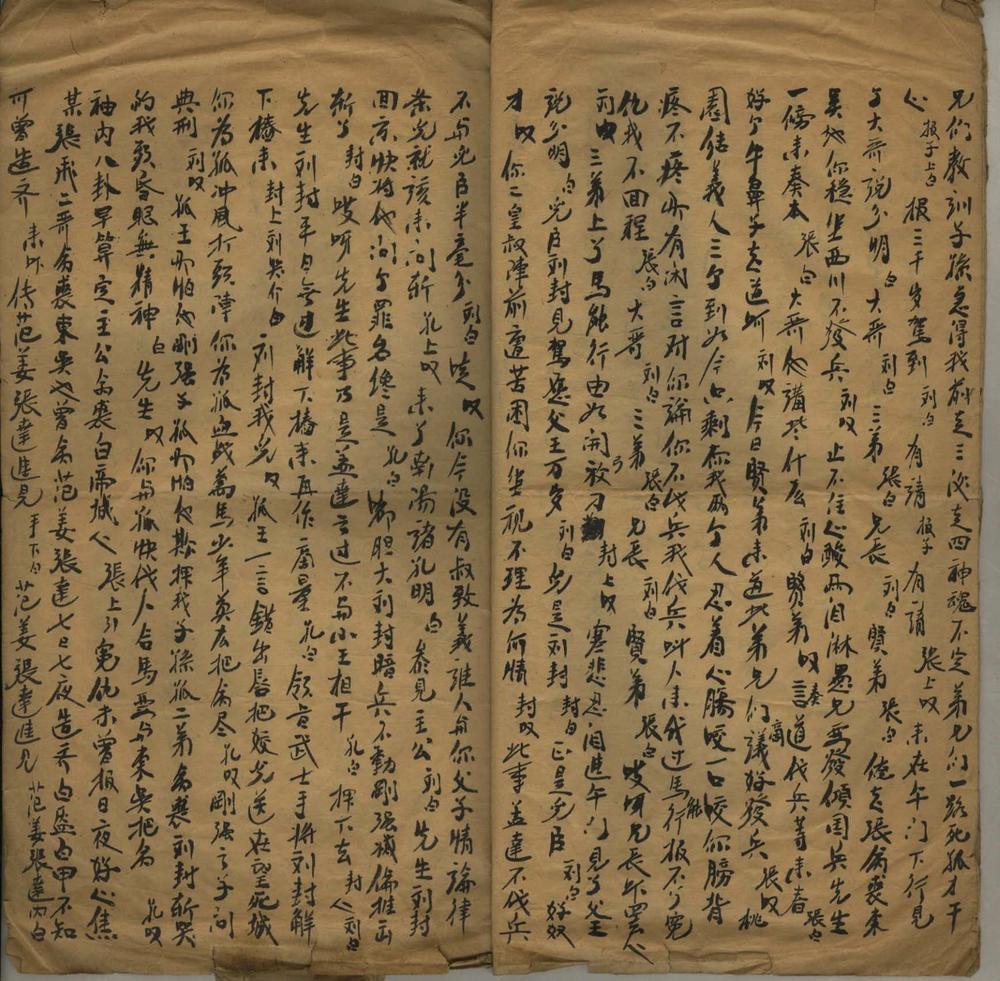 兄們教訓子孫急得我剁走三泌走四神魂不定弟兄們一路死孤才干
心 报子上白 报三千岁駕到 刘白 有請 报子 有請 張上叹 来在午门下行見
了大哥說分明 白 大哥 刘白 三弟 張白 兄長 刘白 賢弟 張白 俺去張 喪東
吴地你穏坐西川不發兵 刘叹 止不住心酸两泪淋愚兄要發傾国兵先生
一傍来奏本 張白 大哥他講些什么 刘白 賢弟 叹 言道代兵等来春 張白
好个午鼻子老道 刘叹 今日賢弟来道此弟兄們商議好發兵 張叹 桃
園结義人三个到如今只剩你我两个人忍着心腸咬一口咬你膀背
疼不疼 有闲言对你論你不代兵我代兵叫人来代过馬能行报不了寃
仇我不回程 張白 大哥 刘白 三弟 張白 兄長 刘白 賢弟 張白 哎呀兄長 心
刘叹 三弟上了馬能行由如開敉刀 封上叹 寒悲忍泪進午门見了父王
說分明 白 兒臣刘封見駕愿父王万岁 刘白 兒是刘封 封白 正是兒臣 刘白 好奴
才 叹 你二皇叔陣前遭苦困你坐視不理為何情 封叹 此事孟達不代兵
不与兒臣半毫分 刘白 叹 你今没有叔致義誰人与你父子情論律
条兒就該来问斬 孔上叹 来了南陽諸孔明 白 参見主公 刘白 先生刘封
回京快将他问了罪名俺是 孔白 胆大刘封暗兵不動剛强 推出
斬了 封白 哎呀先生此事乃是孟達言过不与小王相干 孔白 押下去 封 心 刘白
先生刘封平日無过解下樁来再作商量 孔白 領旨武士手将刘封解
下樁来 封上刘哭介白 刘封我兒 叹 孤王一言錯出唇把姣兒送在望死城
你為孤冲風打頭陣你為孤血战萬馬少年英 把命尽 孔叹 剛强 子问
典刑 刘叹 孤王 怕他剛强子孤 怕他欺押我子孫孤二弟命喪刘封斬哭
的我頭昏眼無精神 白 先生 叹 你与孤快代人合馬要与東吴把名 孔叹
袖内八卦早算定主公命喪白帝城 心 張上引 寃仇未曾报日夜好心焦
某張飛二哥命喪東吴也曾命范姜張達七日七夜造齐白盔白甲不知
可曾造齐 来呀 传范姜張達進見 手下白 范姜張達進見 范姜張達内白